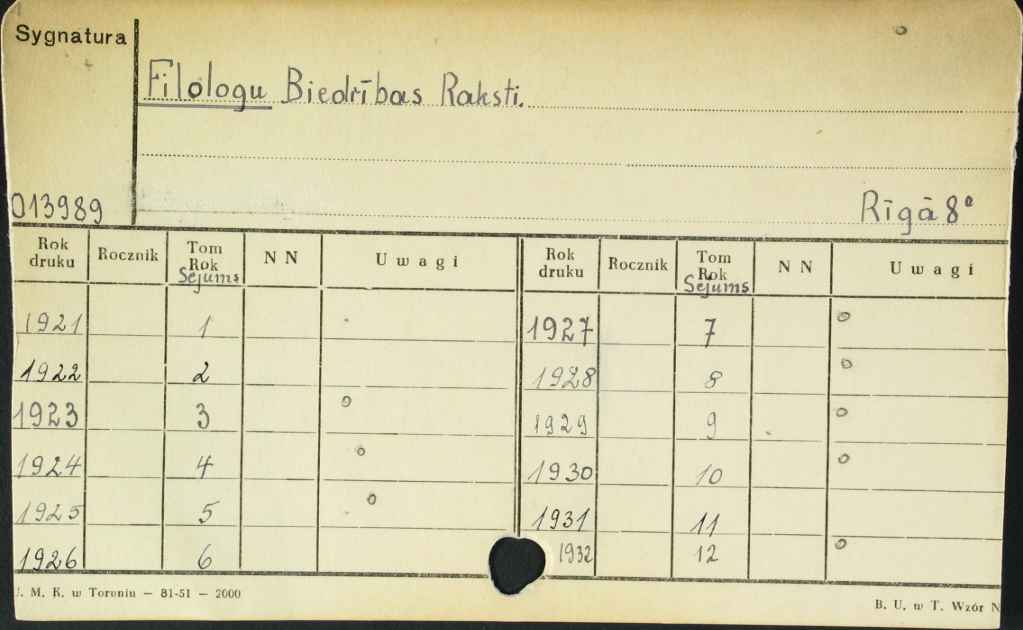 Sygnatura
Filologu Biedrības Raksti.
013989
Rīgā 8°
Rok druku Rocznik Tom Rok Sējums N N Uwagi Rok druku Rocznik Tom Rok Sējums N N Uwagi
1921 1 1927 7 o
1922 2 1928 8 o
1923 3 o 1929 9 o
1924 4 o 1930 10 o
1925 5 o 1931 11
1926 6 1932 12 o
U. M. K. w Toruniu — 81-51 — 2000
B. U. w T. Wzór N